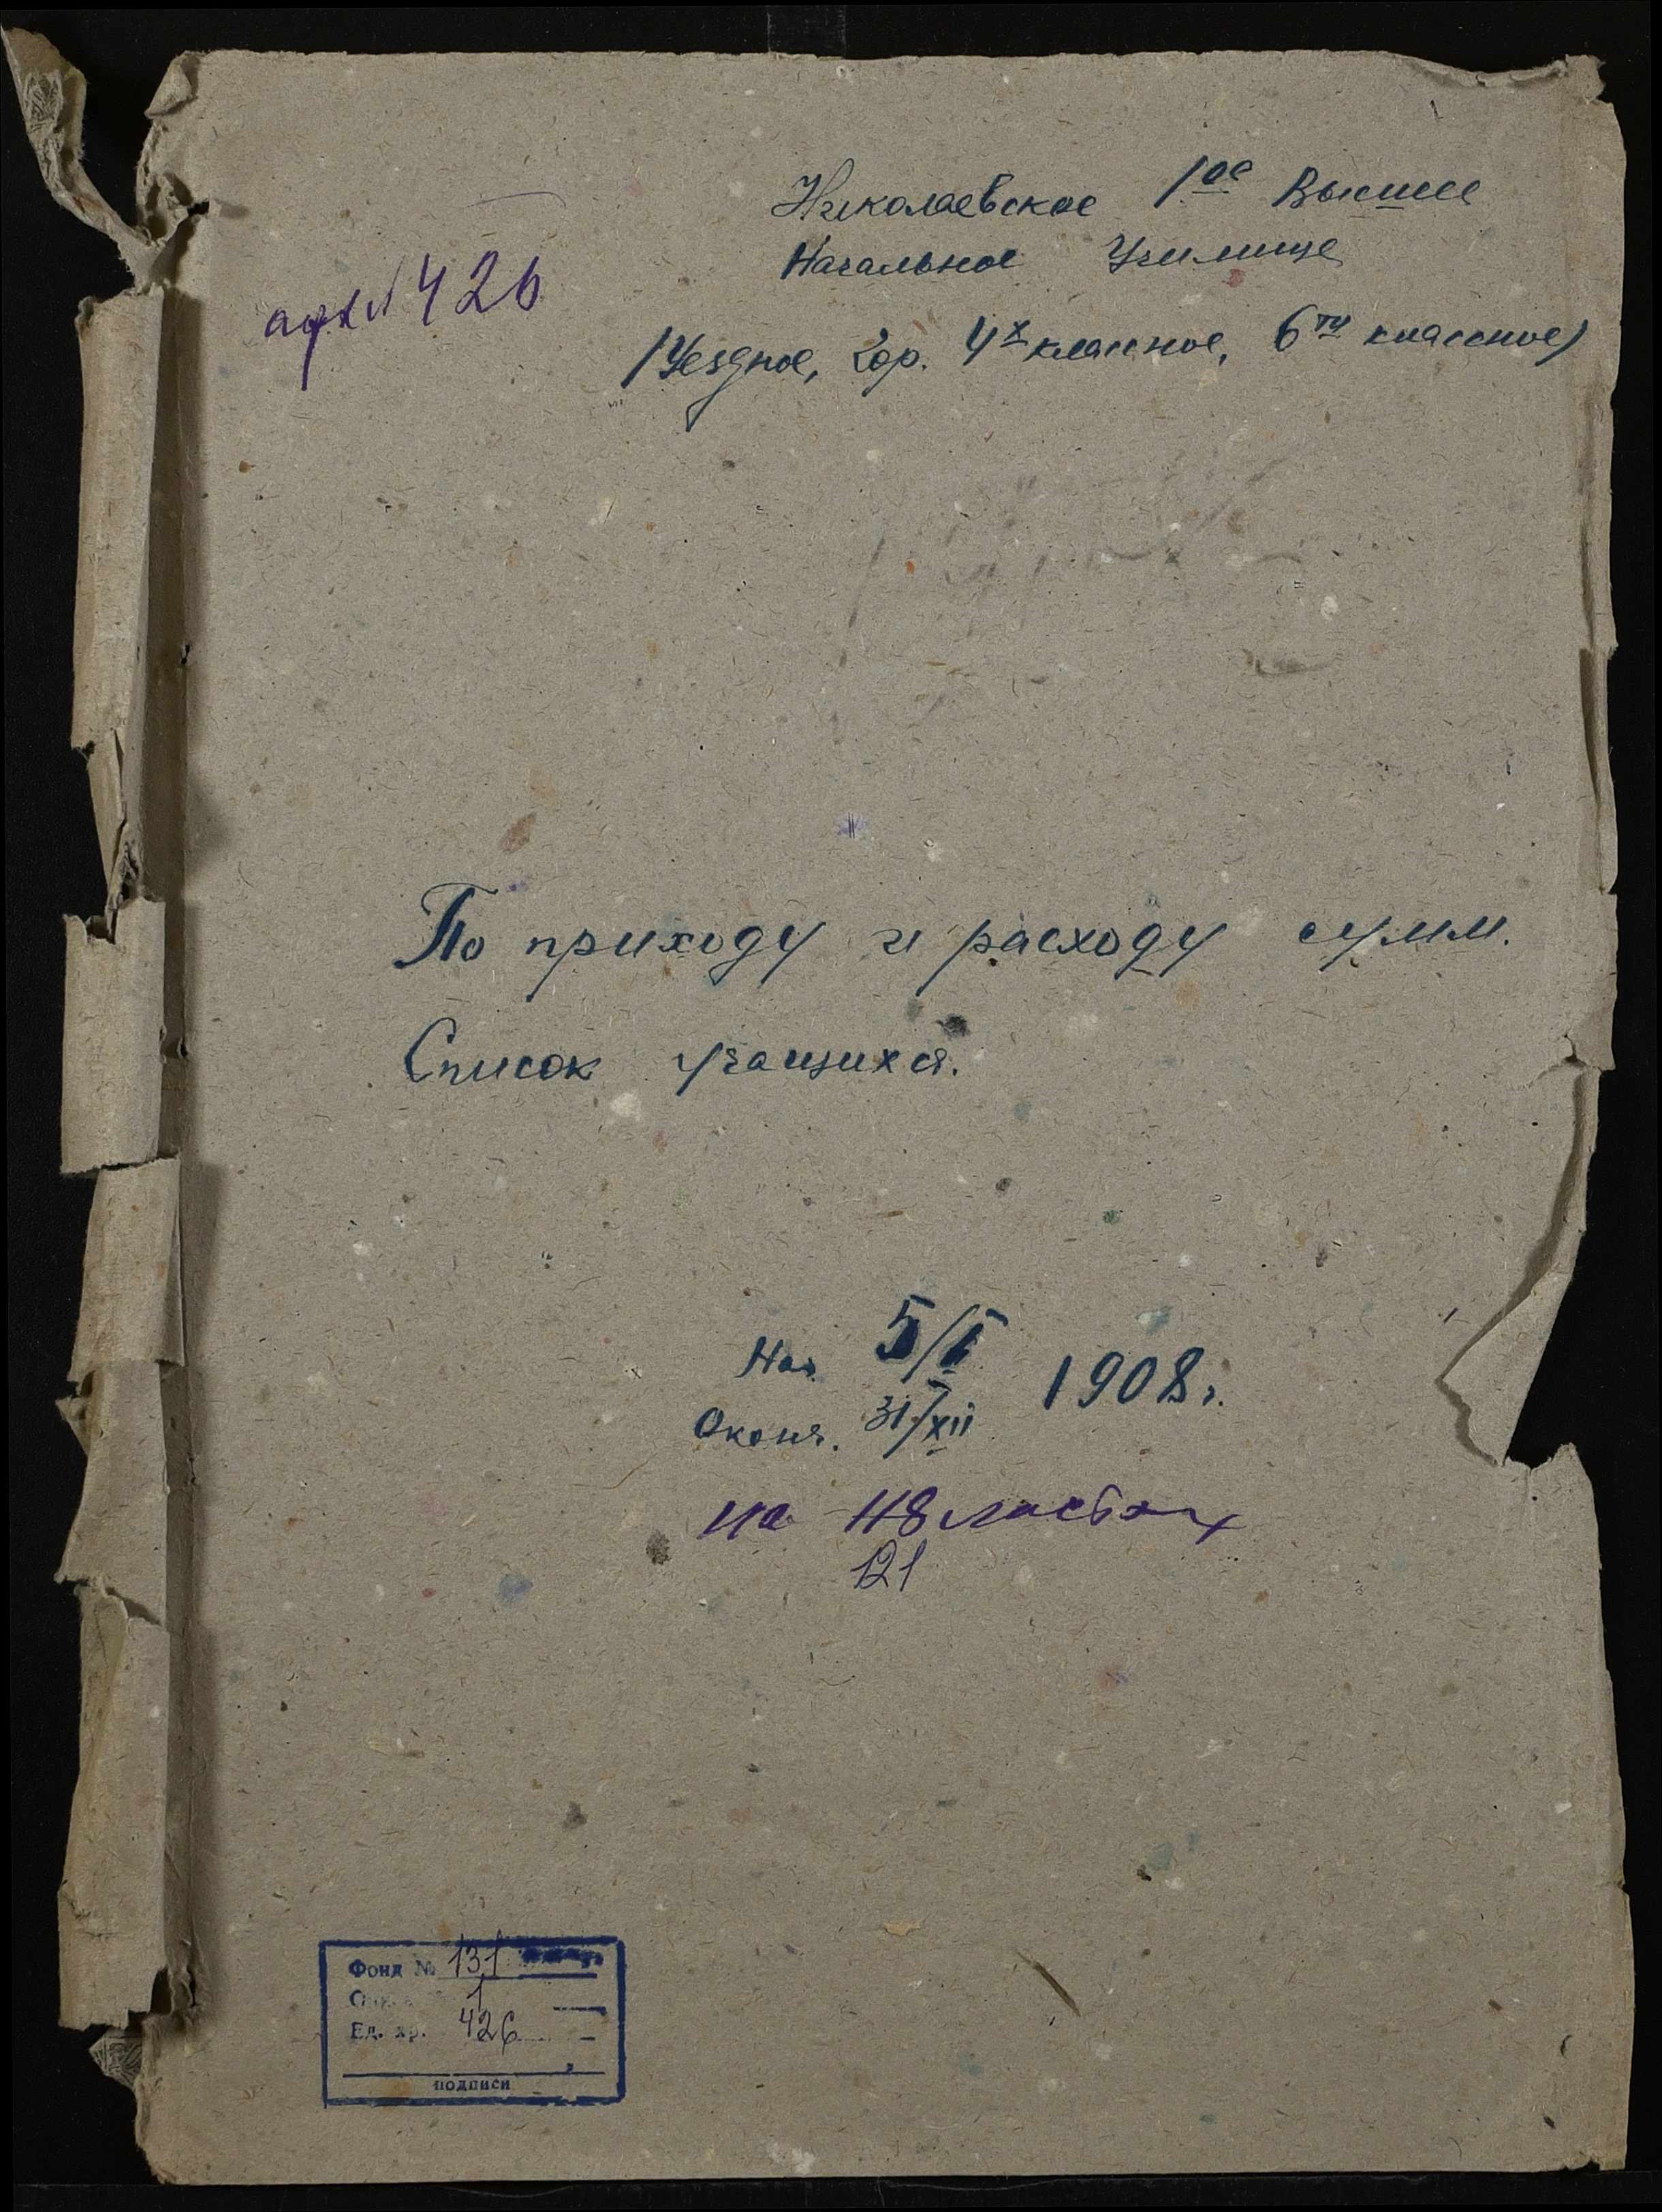 Николаевское 1ое Высшее
Начальное Училище
арх № 426
(Уездное, гор. 4х классное, 6ти классное)
По приходу и расходу сумм.
Список учащихся.
Нач. 5/I 1908 г.
Оконч. 31/XII
на 118 листах
121
Фонд № 131
1
Ед. хр. 426
подписи